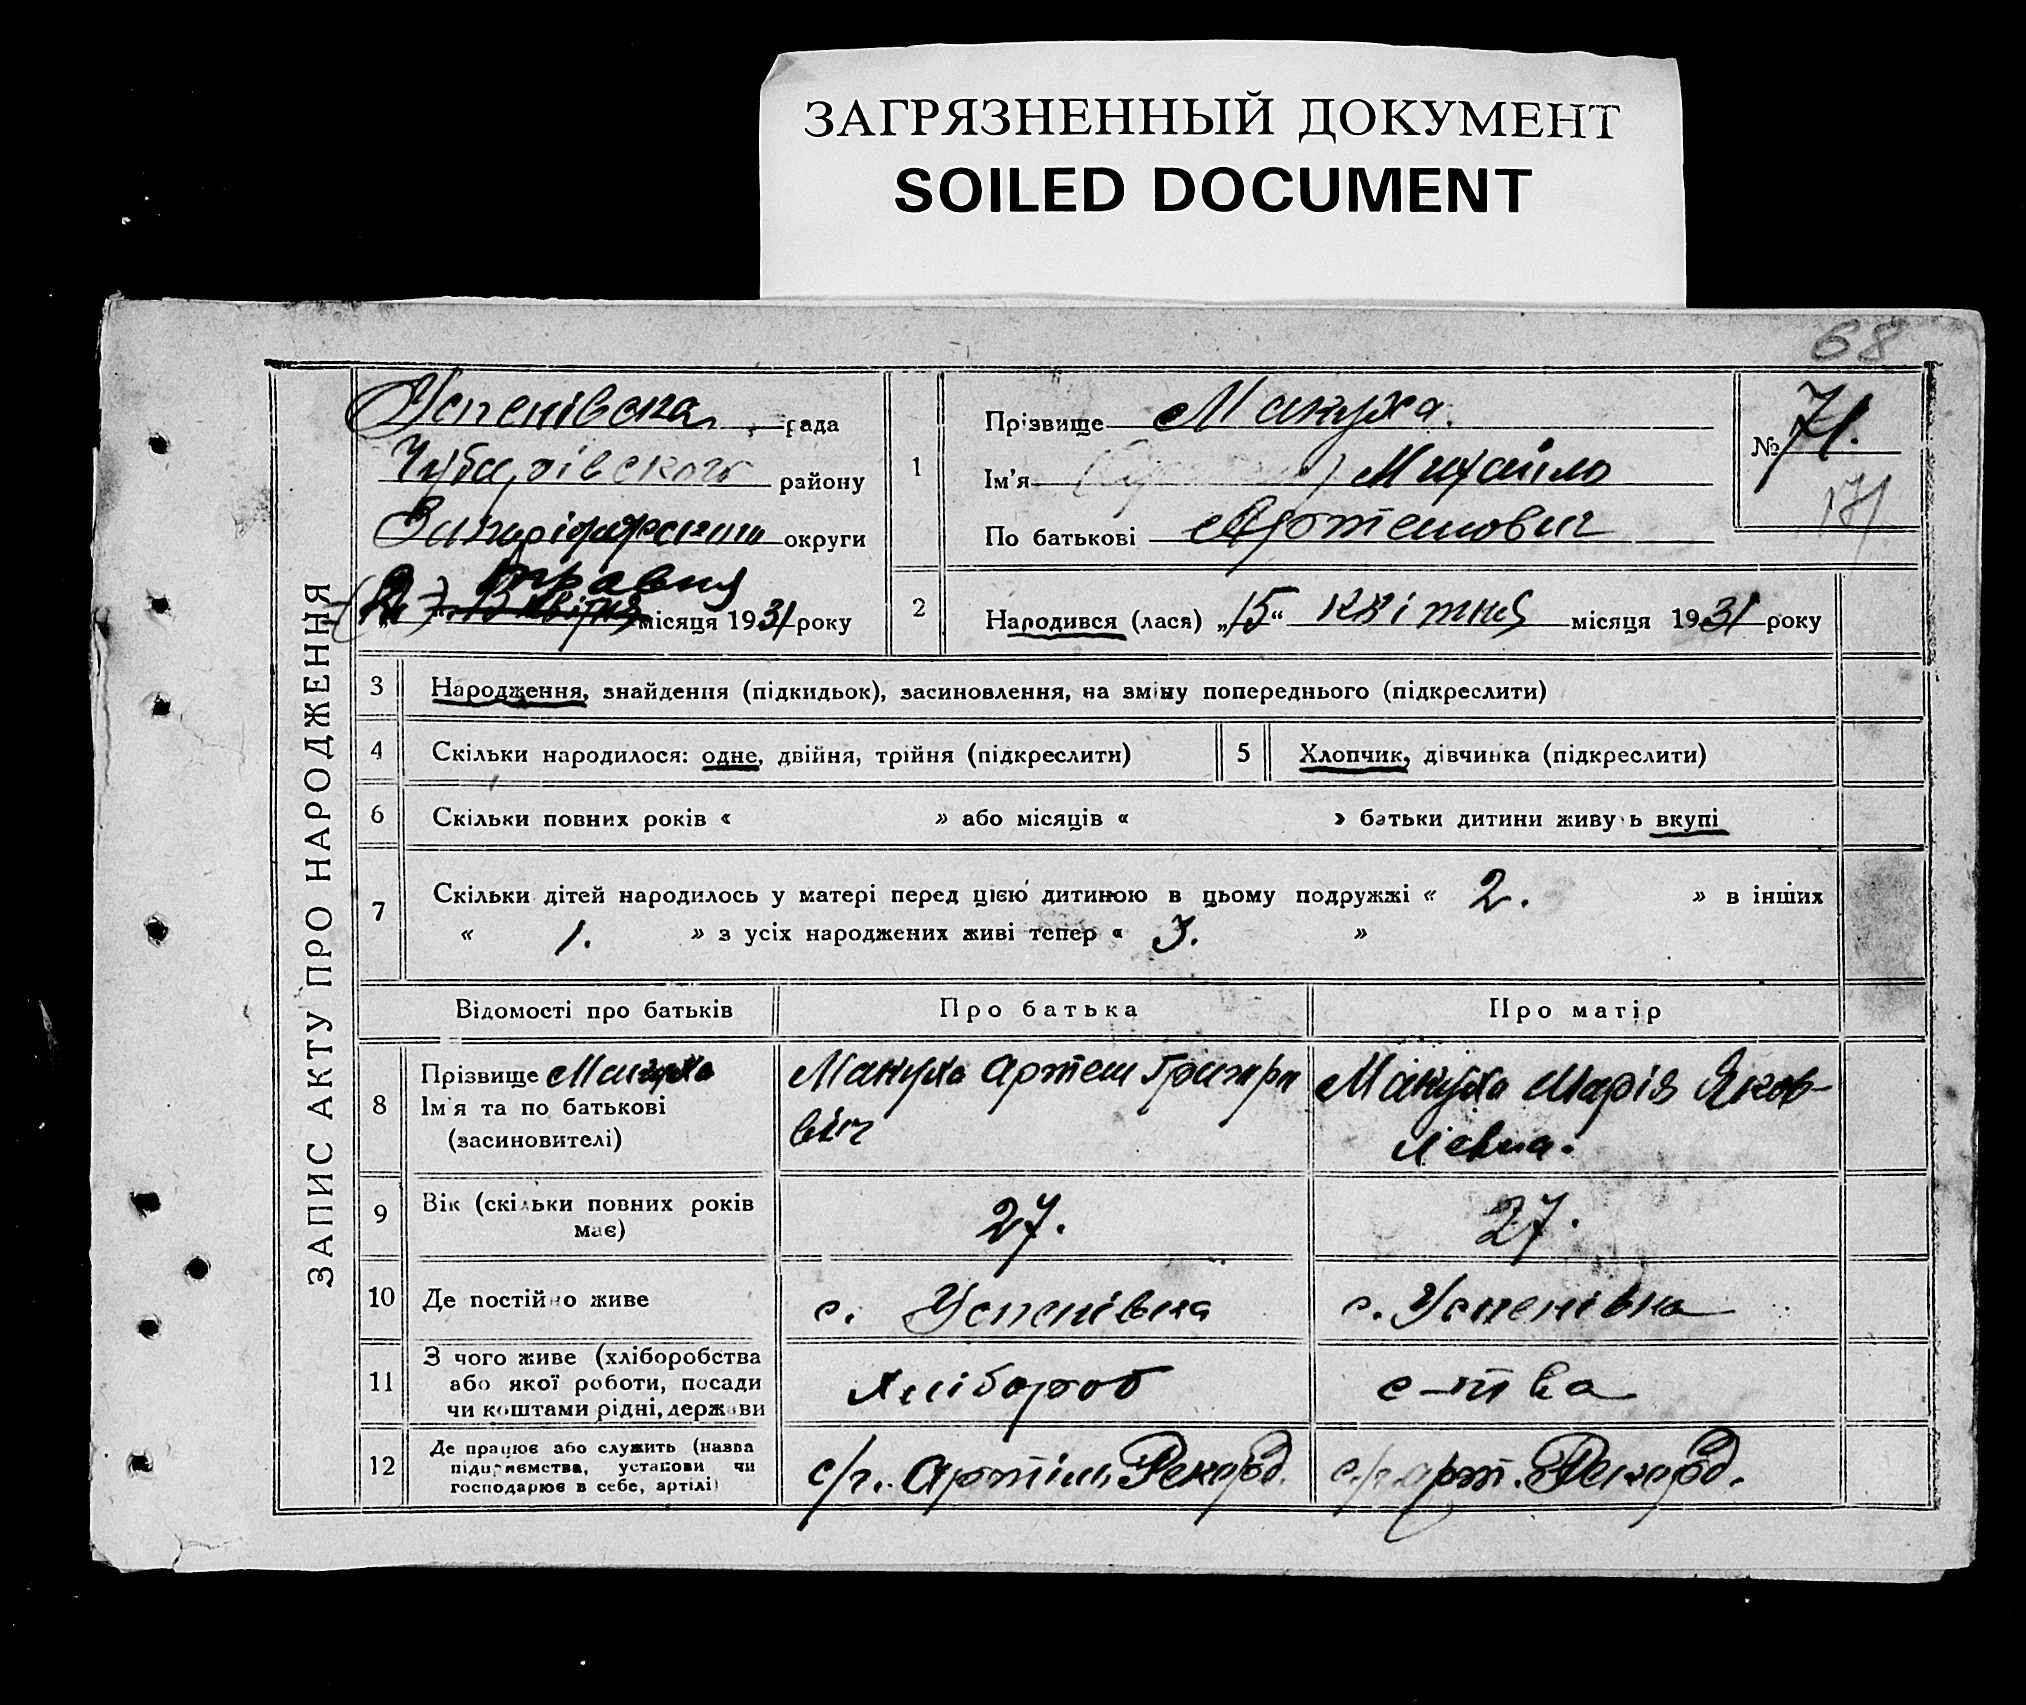 ЗАГРЯЗНЕННЫЙ ДОКУМЕНТ
SOILED DOCUMENT
68
ЗАПИС АКТУ ПРО НАРОДЖЕННЯ
Успенівська рада
Чубарівського району
округи
травня
місяця 1931 року
1
Прізвище Макуха.
Ім'я Михайло
По батькові Артемович
№ 71.
171
2
Народився (лася) „15“ квітня місяця 1931 року
3 Народження, знайдення (підкидьок), засиновлення, на зміну попереднього (підкреслити)
4 Скільки народилося: одне, двійня, трійня (підкреслити)
5 Хлопчик, дівчинка (підкреслити)
6 Скільки повних років « » або місяців « » батьки дитини живуть вкупі
7 Скільки дітей народилось у матері перед цією дитиною в цьому подружжі « 2. » в інших
« 1. » з усіх народжених живі тепер « 3. »
Відомості про батьків Про батька Про матір
8 Прізвище Макуха
Ім'я та по батькові
(засиновителі)
Макуха Артем Григоро
вич
Макуха Марія Яков-
лівна.
9 Вік (скільки повних років
має)
27.
27.
10 Де постійно живе
с. Успенівка
с. Успенівка
11 З чого живе (хліборобства
або якої роботи, посади
чи коштами рідні, держави
хлібороб
с-тва
12 Де працює або служить (назва
підприємства, установи чи
господарює в себе, артілі)
с/г. Артіль Рекорд.
с/г арт. Рекорд.